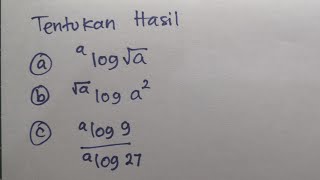 Tentukan Hasil
ⓐ ᵃlog√a
ⓑ √ᵃlog a²
ⓒ ᵃlog 9
ᵃlog 27